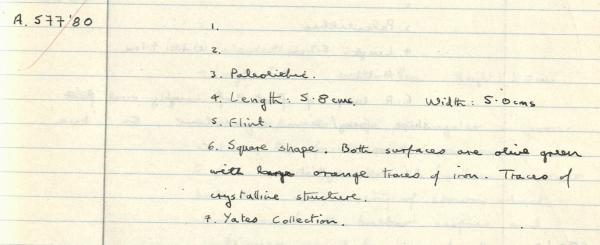 A. 577'80
1.
2.
3. Paleolithic.
4. Length: 5.8cms. Width: 5.0cms
5. Flint.
6. Square shape. Both surfaces are olive green
with large orange traces of iron. Traces of
crystalline structure.
7. Yates Collection.